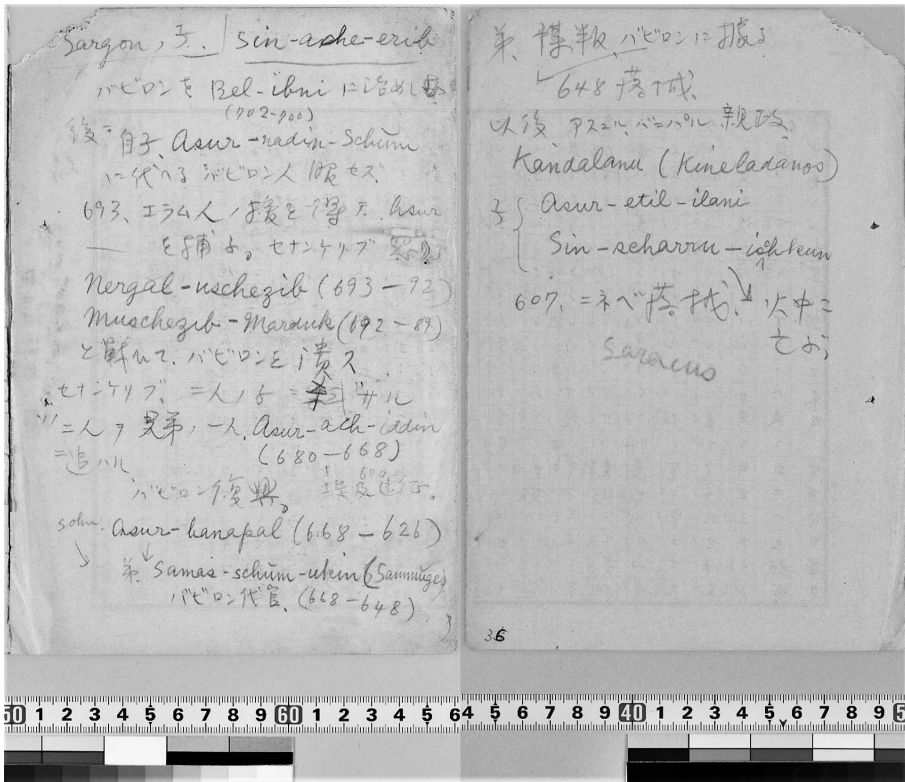 Sargon ノ子. Sin-ache-erib
バビロンを Bel-ibni に治めし
(702-700)
後ニ 自子、Asur-nadin-Schum
に代へる バビロン人 服セズ
693、エラム人ノ援を得テ Asur
— を捕ふ。セナンケリブ
Nergal-uschezib (693-92)
Muschezib-Marduk (692-89)
と戦ひて、バビロンを潰ス
セナンケリブ、二人ノ子ニ弑サル
二人ヲ兄弟ノ一人、Asur-ach-iddin
ニ追ハル (680-668)
バビロン復興。
Sohn. Asur-banapal (668-626)
弟. Samas-schum-ukin (Sammuges)
バビロン代官. (668-648)
弟、謀叛、バビロンに據る
648 落城、
以後 アスュル、バニパル 親政、
Kandalanu (Kineladanos)
子 Asur-etil-ilani
Sin-scharru-ischkun
607、ニネベ落城、火中ニ
Saracus
36
50 1 2 3 4 5 6 7 8 9 60 1 2 3 4 5 6
4 5 6 7 8 9 40 1 2 3 4 5 6 7 8 9 5